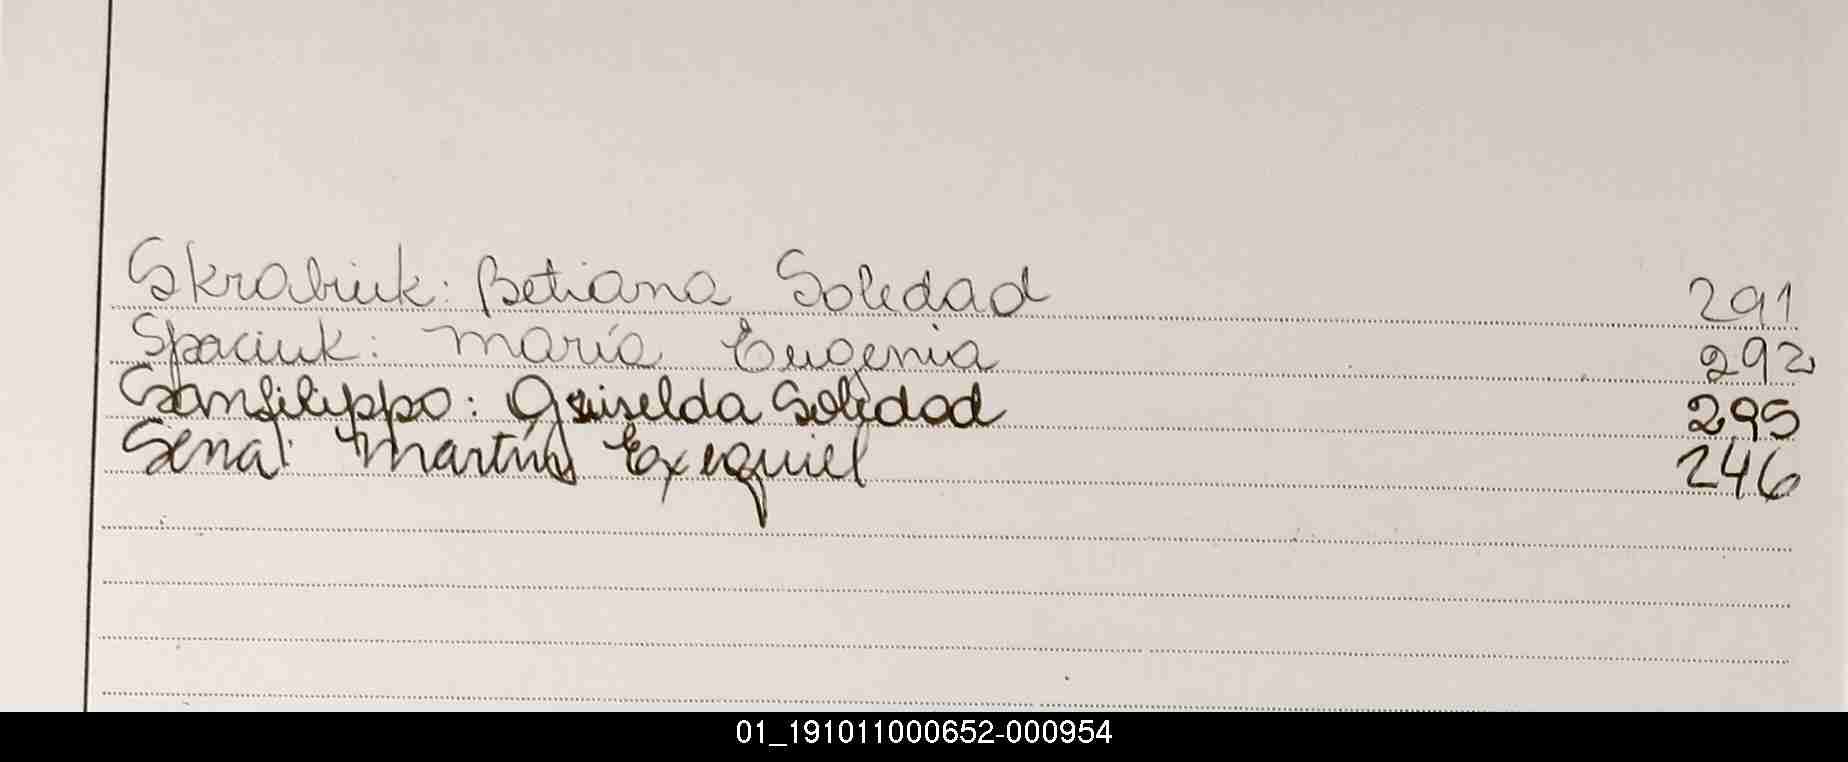 Skrabiuk: Betiana Soledad 291
Spaciuk: María Eugenia 292
Sanfilippo: Griselda Soledad 295
Sena: Martín Exequiel 246
01_191011000652-000954